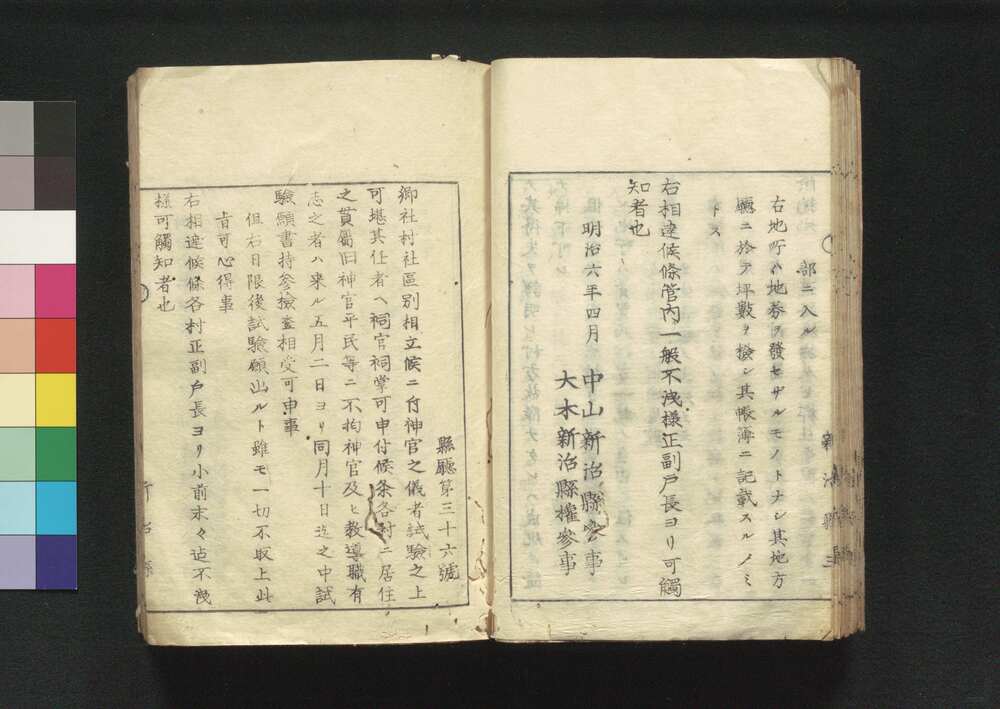 部ニ入ル
右地所ハ地券ヲ發セザルモノトナシ其地方
廳ニ於テ坪數ヲ檢シ其帳簿ニ記載スルノミ
トス
右相達候條管内一般不洩様正副戸長ヨリ可觸
知者也
明治六年四月 中山新治縣參事
大木新治縣權參事
縣廳第三十六號
郷社村社區別相立候ニ付神官之儀者試驗之上
可堪其任者ヘ祠官祠掌可申付候条各村ニ居住
之貫屬旧神官平民等ニ不拘神官及ヒ教導職有
志之者ハ来ル五月二日ヨリ同月十日迄之中試
驗願書持參檢査相受可申事
但右日限後試驗願出ルト雖モ一切不取上此
旨可心得事
右相達候條各村正副戸長ヨリ小前末々迠不洩
様可觸知者也
新治縣